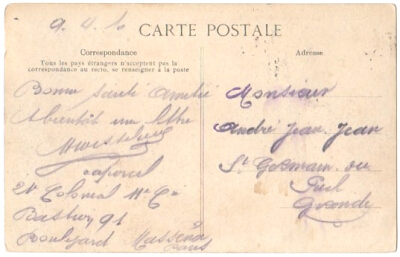 9. 4. 10
CARTE POSTALE
Correspondance
Tous les pays étrangers n'acceptent pas la
correspondance au recto, se renseigner à la poste
Bonne santé Amitié
A bientôt une lettre
caporal
21e Colonial 11e Cie
Bastion 91
Boulevard Masséna
Paris
Adresse
Monsieur
André Jean Jean
St Germain du
Puch
Gironde